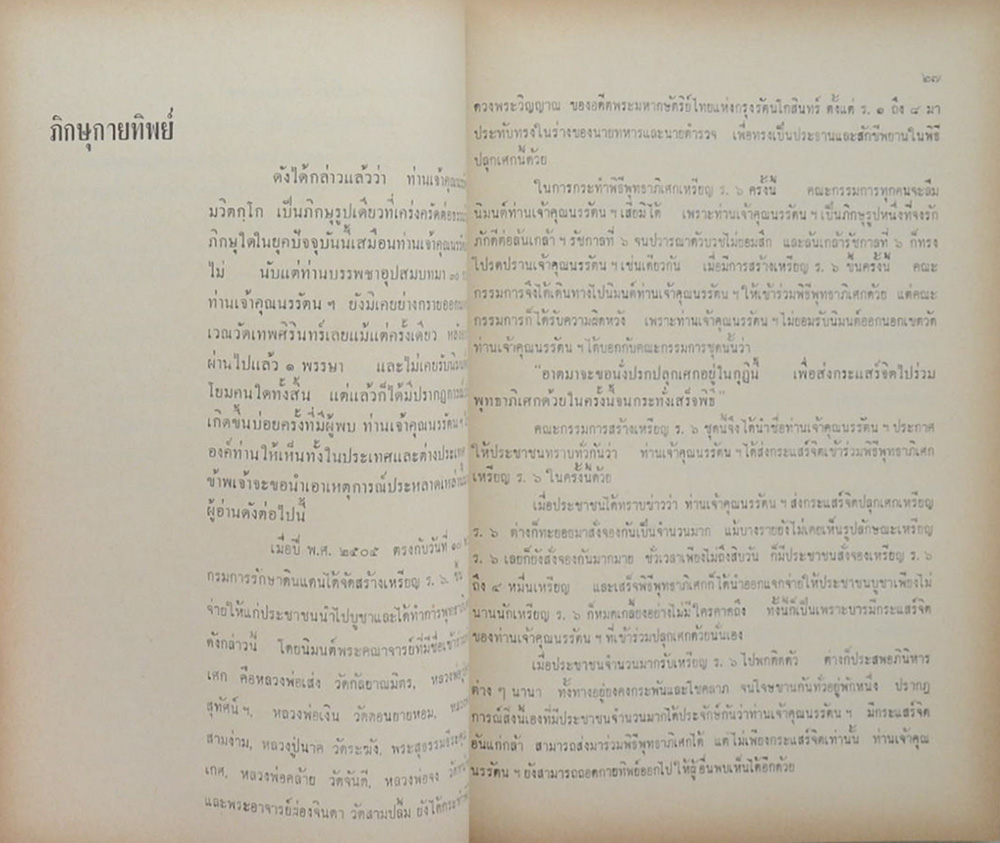 ภิกษุกายทิพย์
ดังได้กล่าวแล้วว่า ท่านเจ้าคุณ
มวิตกฺโก เป็นภิกษุรูปเดียวที่เคร่งครัดต่อ
ภิกษุใดในยุคปัจจุบันนี้เสมือนท่านเจ้าคุณ
ไม่ นับแต่ท่านบรรพชาอุปสมบทมา
ท่านเจ้าคุณนรรัตน ฯ ยังมิเคยย่างกรายออก
เวณวัดเทพศิรินทร์เลยแม้แต่ครั้งเดียว
ผ่านไปแล้ว ๑ พรรษา และไม่เคยรับ
โยมคนใดทั้งสิ้น แต่แล้วก็ได้มีปรากฏการณ์
เกิดขึ้นบ่อยครั้งที่มีผู้พบ ท่านเจ้าคุณนรรัตน ฯ
องค์ท่านให้เห็นทั้งในประเทศและต่างประเทศ
ข้าพเจ้าจะขอนำเอาเหตุการณ์ประหลาดเหล่า
ผู้อ่านดังต่อไปนี้
เมื่อปี พ.ศ. ๒๕๐๕ ตรงกับวันที่
กรมการรักษาดินแดนได้จัดสร้างเหรียญ ร. ๖.
จ่ายให้แก่ประชาชนนำไปบูชาและได้ทำการ
ดังกล่าวนี้ โดยนิมนต์พระคณาจารย์ที่มีชื่อเข้าร่วม
เศก คือหลวงพ่อเส่ง วัดกัลยาณมิตร, หลวงพ่อ
สุทัศน์ ฯ, หลวงพ่อเงิน วัดดอนยายหอม,
สามง่าม, หลวงปู่นาค วัดระฆัง, พระสุธรรม
เกศ, หลวงพ่อคล้าย วัดจันดี, หลวงพ่อจง
และพระอาจารย์ผ่องจินดา วัดสามปลื้ม ยังได้
๒๗
ดวงพระวิญญาณ ของอดีตพระมหากษัตริย์ไทยแห่งกรุงรัตนโกสินทร์ ตั้งแต่ ร. ๑ ถึง ๘ มา
ประทับทรงในร่างของนายทหารและนายตำรวจ เพื่อทรงเป็นประธานและสักขีพยานในพิธี
ปลุกเศกนี้ด้วย
ในการกระทำพิธีพุทธาภิเศกเหรียญ ร. ๖ ครั้งนี้ คณะกรรมการทุกคนจะลืม
นิมนต์ท่านเจ้าคุณนรรัตน ฯ เสียมิได้ เพราะท่านเจ้าคุณนรรัตน ฯ เป็นภิกษุรูปหนึ่งที่จงรัก
ภักดีต่อล้นเกล้า ฯ รัชกาลที่ ๖ จนปวารณาตัวบวชไม่ยอมสึก และล้นเกล้ารัชกาลที่ ๖ ก็ทรง
โปรดปรานเจ้าคุณนรรัตน ฯ เช่นเดียวกัน เมื่อมีการสร้างเหรียญ ร. ๖ ขึ้นครั้งนี้ คณะ
กรรมการจึงได้เดินทางไปนิมนต์ท่านเจ้าคุณนรรัตน ฯ ให้เข้าร่วมพิธีพุทธาภิเศกด้วย แต่คณะ
กรรมการก็ได้รับความผิดหวัง เพราะท่านเจ้าคุณนรรัตน ฯ ไม่ยอมรับนิมนต์ออกนอกเขตวัด
ท่านเจ้าคุณนรรัตน ฯ ได้บอกกับคณะกรรมการชุดนั้นว่า
"อาตมาจะขอนั่งปรกปลุกเศกอยู่ในกุฏินี้ เพื่อส่งกระแสร์จิตไปร่วม
พุทธาภิเศกด้วยในครั้งนี้จนกระทั่งเสร็จพิธี"
คณะกรรมการสร้างเหรียญ ร. ๖ ชุดนี้จึงได้นำชื่อท่านเจ้าคุณนรรัตน ฯ ประกาศ
ให้ประชาชนทราบทั่วกันว่า ท่านเจ้าคุณนรรัตน ฯ ได้ส่งกระแสร์จิตเข้าร่วมพิธีพุทธาภิเศก
เหรียญ ร. ๖ ในครั้งนี้ด้วย
เมื่อประชาชนได้ทราบข่าวว่า ท่านเจ้าคุณนรรัตน ฯ ส่งกระแสร์จิตปลุกเศกเหรียญ
ร. ๖ ต่างก็ทะยอยมาสั่งจองกันเป็นจำนวนมาก แม้บางรายยังไม่เคยเห็นรูปลักษณะเหรียญ
ร. ๖ เลยก็ยังสั่งจองกันมากมาย ชั่วเวลาเพียงไม่ถึงสิบวัน ก็มีประชาชนสั่งจองเหรียญ ร. ๖
ถึง ๔ หมื่นเหรียญ และเสร็จพิธีพุทธาภิเศกก็ได้นำออกแจกจ่ายให้ประชาชนบูชาเพียงไม่
นานนักเหรียญ ร. ๖ ก็หมดเกลี้ยงอย่างไม่มีใครคาดถึง ทั้งนี้ก็เป็นเพราะบารมีกระแสร์จิต
ของท่านเจ้าคุณนรรัตน ฯ ที่เข้าร่วมปลุกเศกด้วยนั่นเอง
เมื่อประชาชนจำนวนมากรับเหรียญ ร. ๖ ไปพกติดตัว ต่างก็ประสพอภินิหาร
ต่าง ๆ นานา ทั้งทางอยู่ยงคงกระพันและโชคลาภ จนโจษขานกันทั่วอยู่พักหนึ่ง ปรากฏ
การณ์สิ่งนี้เองที่มีประชาชนจำนวนมากได้ประจักษ์กันว่าท่านเจ้าคุณนรรัตน ฯ มีกระแสร์จิต
อันแก่กล้า สามารถส่งมาร่วมพิธีพุทธาภิเศกได้ แต่ไม่เพียงกระแสร์จิตเท่านั้น ท่านเจ้าคุณ
นรรัตน ฯ ยังสามารถถอดกายทิพย์ออกไปให้ผู้อื่นพบเห็นได้อีกด้วย